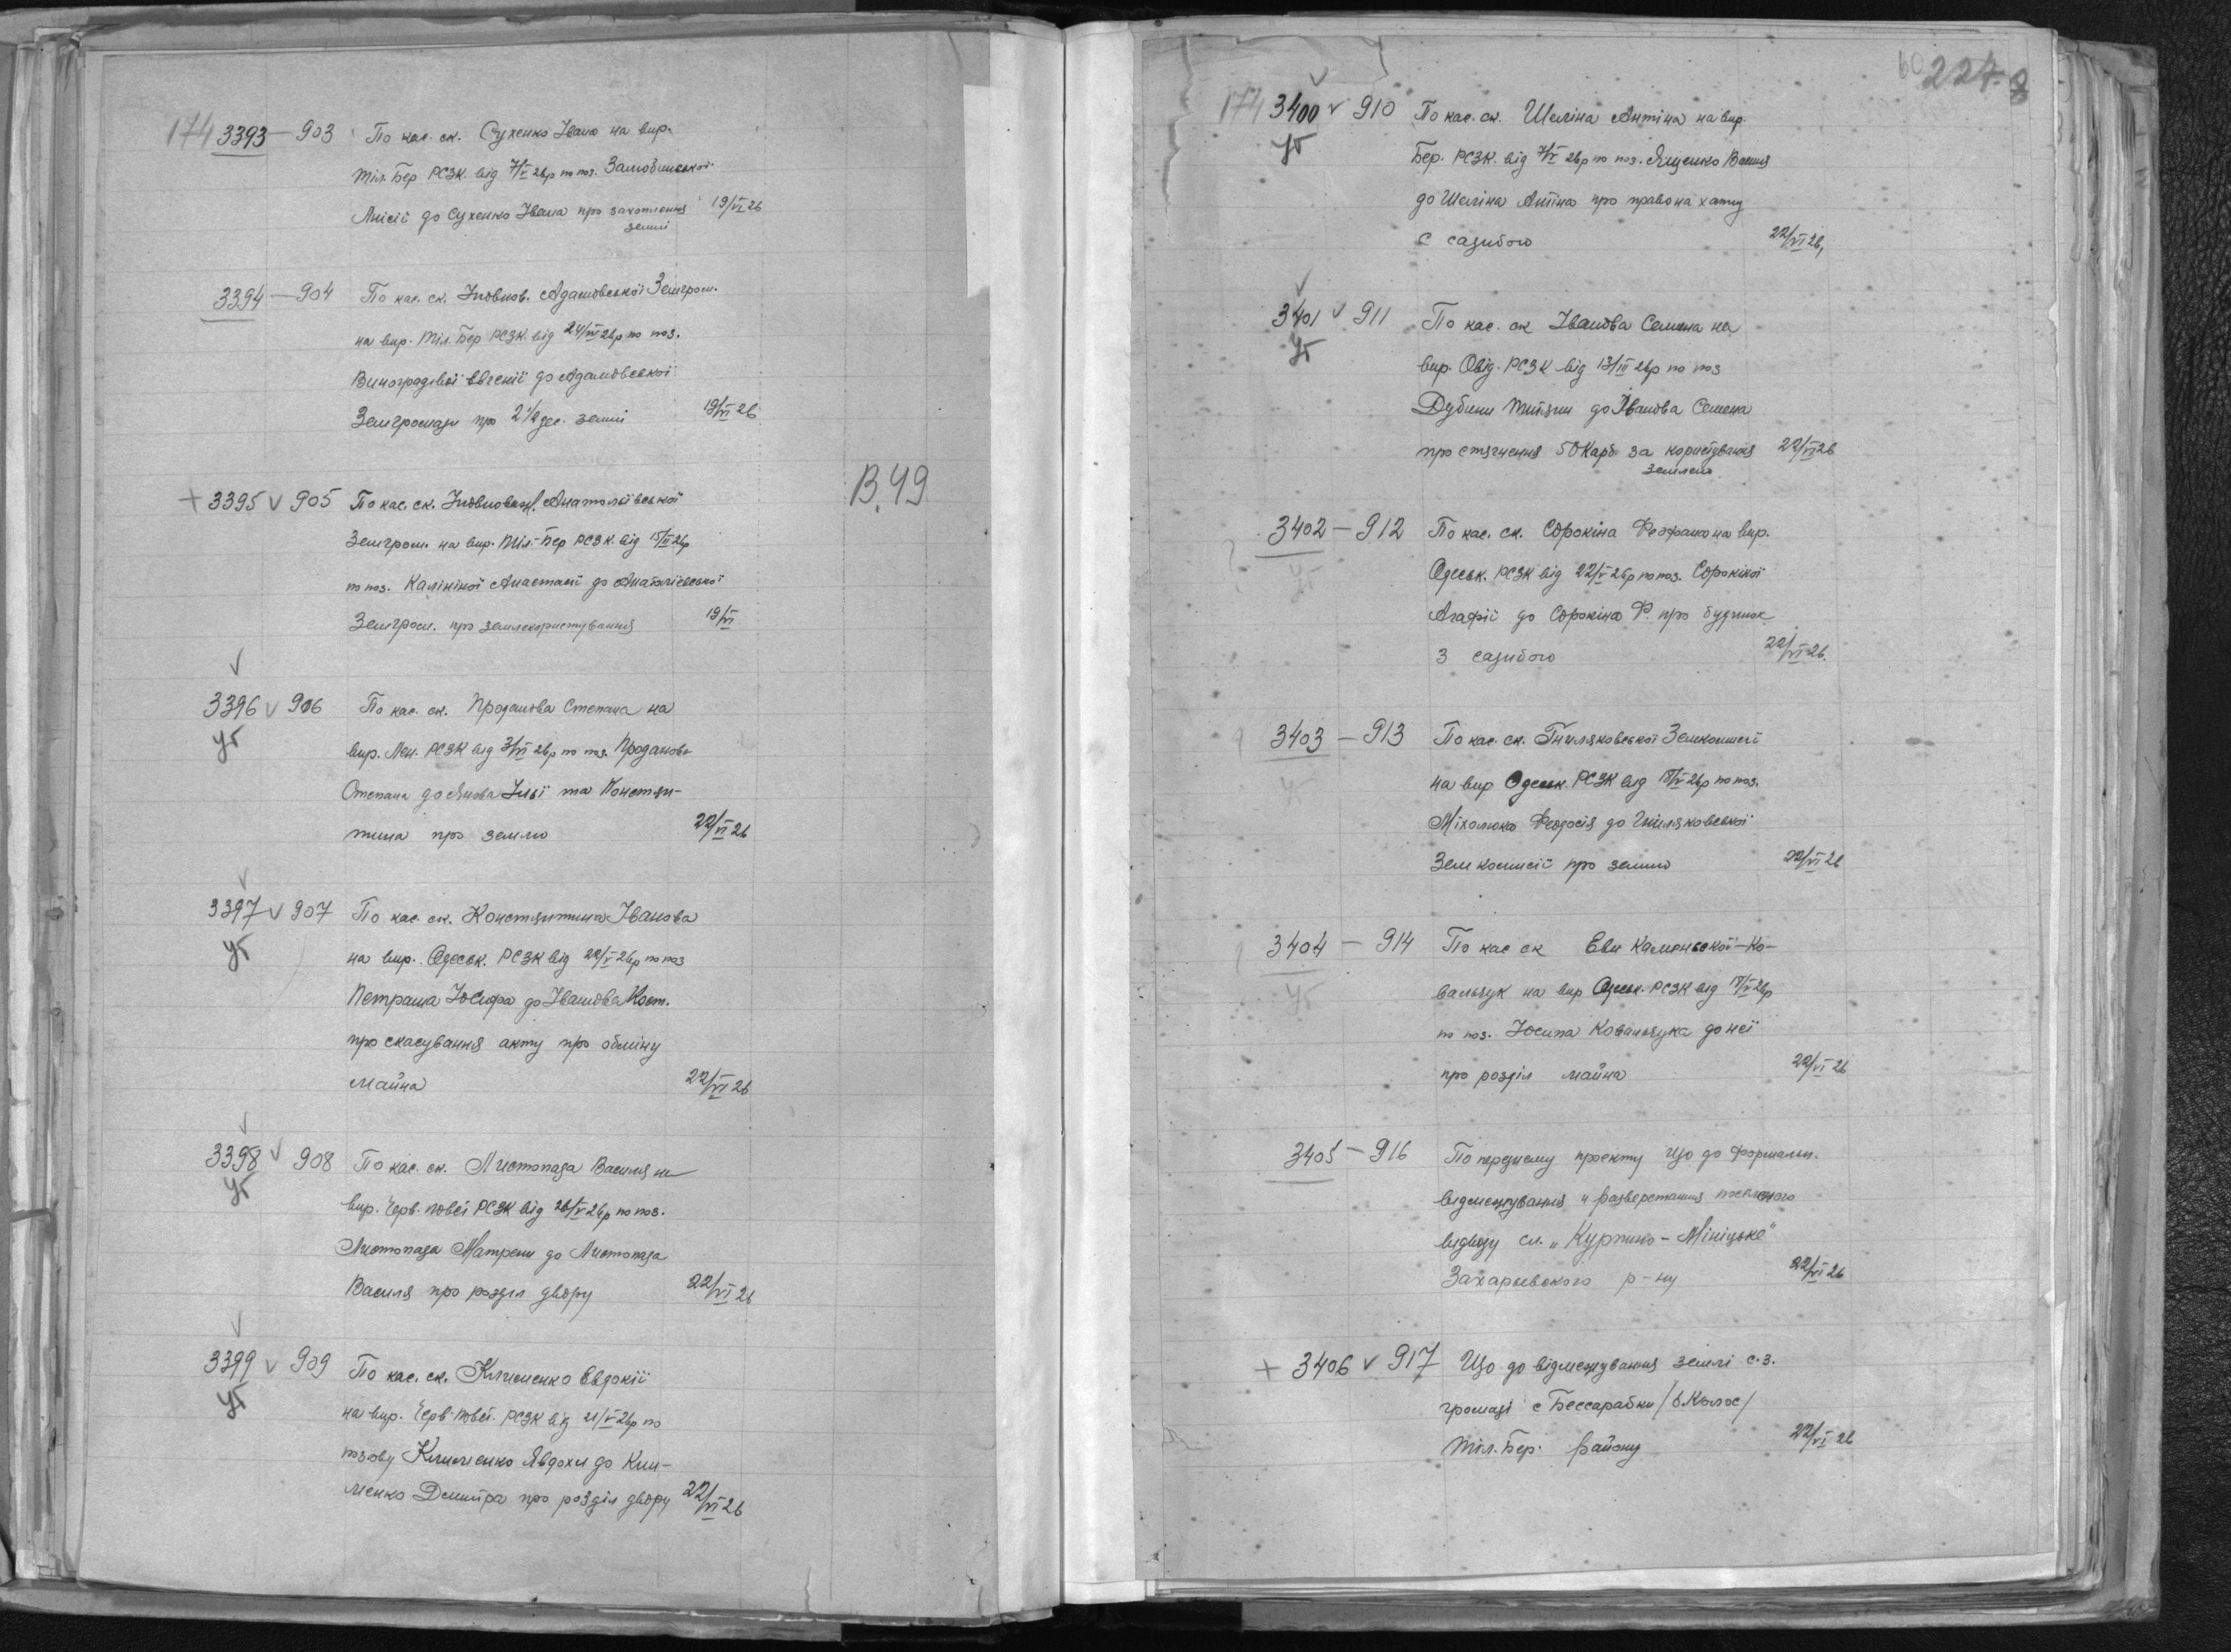 174 3393 — 903 По кас. ск. Сухенко Івана на вир.
Тіл. Бер РСЗК. від 7/V 26р по поз.
Лисії до Сухенко Івана про захоплення 19/VI 26
землі
3394 — 904 По кас. ск. Уповнов. Адамовської Земгром.
на вир. Тіл. Бер РСЗК від 24/IV 26р по поз.
Виноградової Євгенії до Адамовської
Земгромади про 2 1/2 дес. землі 19/VI 26
+ 3395 v 905 По кас. ск. Уповноваж. Анатоліївської
Земгром. на вир. Тіл-Бер РСЗК від 26р
по поз. Калініної Анастасії до Анатолієвської
Земгром. про землекористування 19/VI
В. 49
3396 v 906 По кас. ск. Проданова Степана на
УГ
вир. Лен. РСЗК від 3/VI 26р по поз. Проданова
Степана до Янова Ільї та Констян-
тина про землю 22/VI 26
3397 v 907 По кас. ск. Констянтина Іванова
УГ
на вир. Одеськ. РСЗК від 22/V 26р по поз
Петраша Юсифа до Іванова Кост.
про скасування акту про обміну
майна 22/VI 26
3398 v 908 По кас. ск. Листопада Василя на
УГ
вир. Черв. Повст РСЗК від 26/V 26р по поз.
Листопада Матрени до Листопада
Василя про розділ двору 22/VI 26
3399 v 909 По кас. ск. Клименко Євдокії
УГ
на вир. Черв-Повст. РСЗК від 21/V 26р по
позову Клименко Явдохи до Кли-
менко Дмитра про розділ двору 22/VI 26
60 227 8
174 3400 v 910 По кас. ск. Шеліна Антіна на вир.
УГ
Бер. РСЗК. від 7/V 26р по поз. Яценко Василя
до Шеліна Антіна про право на хату
с садибою 22/VI 26,
3401 v 911 По кас. ск Іванова Семена на
УГ
вир. Овід. РСЗК від 13/III 26р по поз
Дубини до Іванова Семена
про стягнення 50 карб. за користування 22/VI 26
землею
3402 — 912 По кас. ск. Сорокіна Феофана на вир.
УГ
Одеськ. РСЗК від 22/V 26р по поз. Сорокіної
Агафії до Сорокіна Ф. про будинок
з садибою 22/VI 26.
3403 — 913 По кас. ск. Гниляковської Земкомисії
УГ
на вир Одеськ. РСЗК від 18/V 26р по поз.
Міхалюка Феодосія до Гниляковської
Земкомисії про землю 22/VI 26
3404 — 914 По кас ск Еви Каменьської-Ко-
УГ
вальчук на вир Одеськ. РСЗК від 18/V 26р
по поз. Юсипа Ковальчука до неї
про розділ майна 22/VI 26
3405 — 916 По переднему проекту що до формальн.
відмежування и разверстання
відводу сл. „Курпино-Мініцьке"
Захарьевского р-ну 22/VI 26
+ 3406 v 917 Що до відмежування землі с.з.
громаді с Бессарабки / Колос /
Тіл. Бер. району 22/VI 26